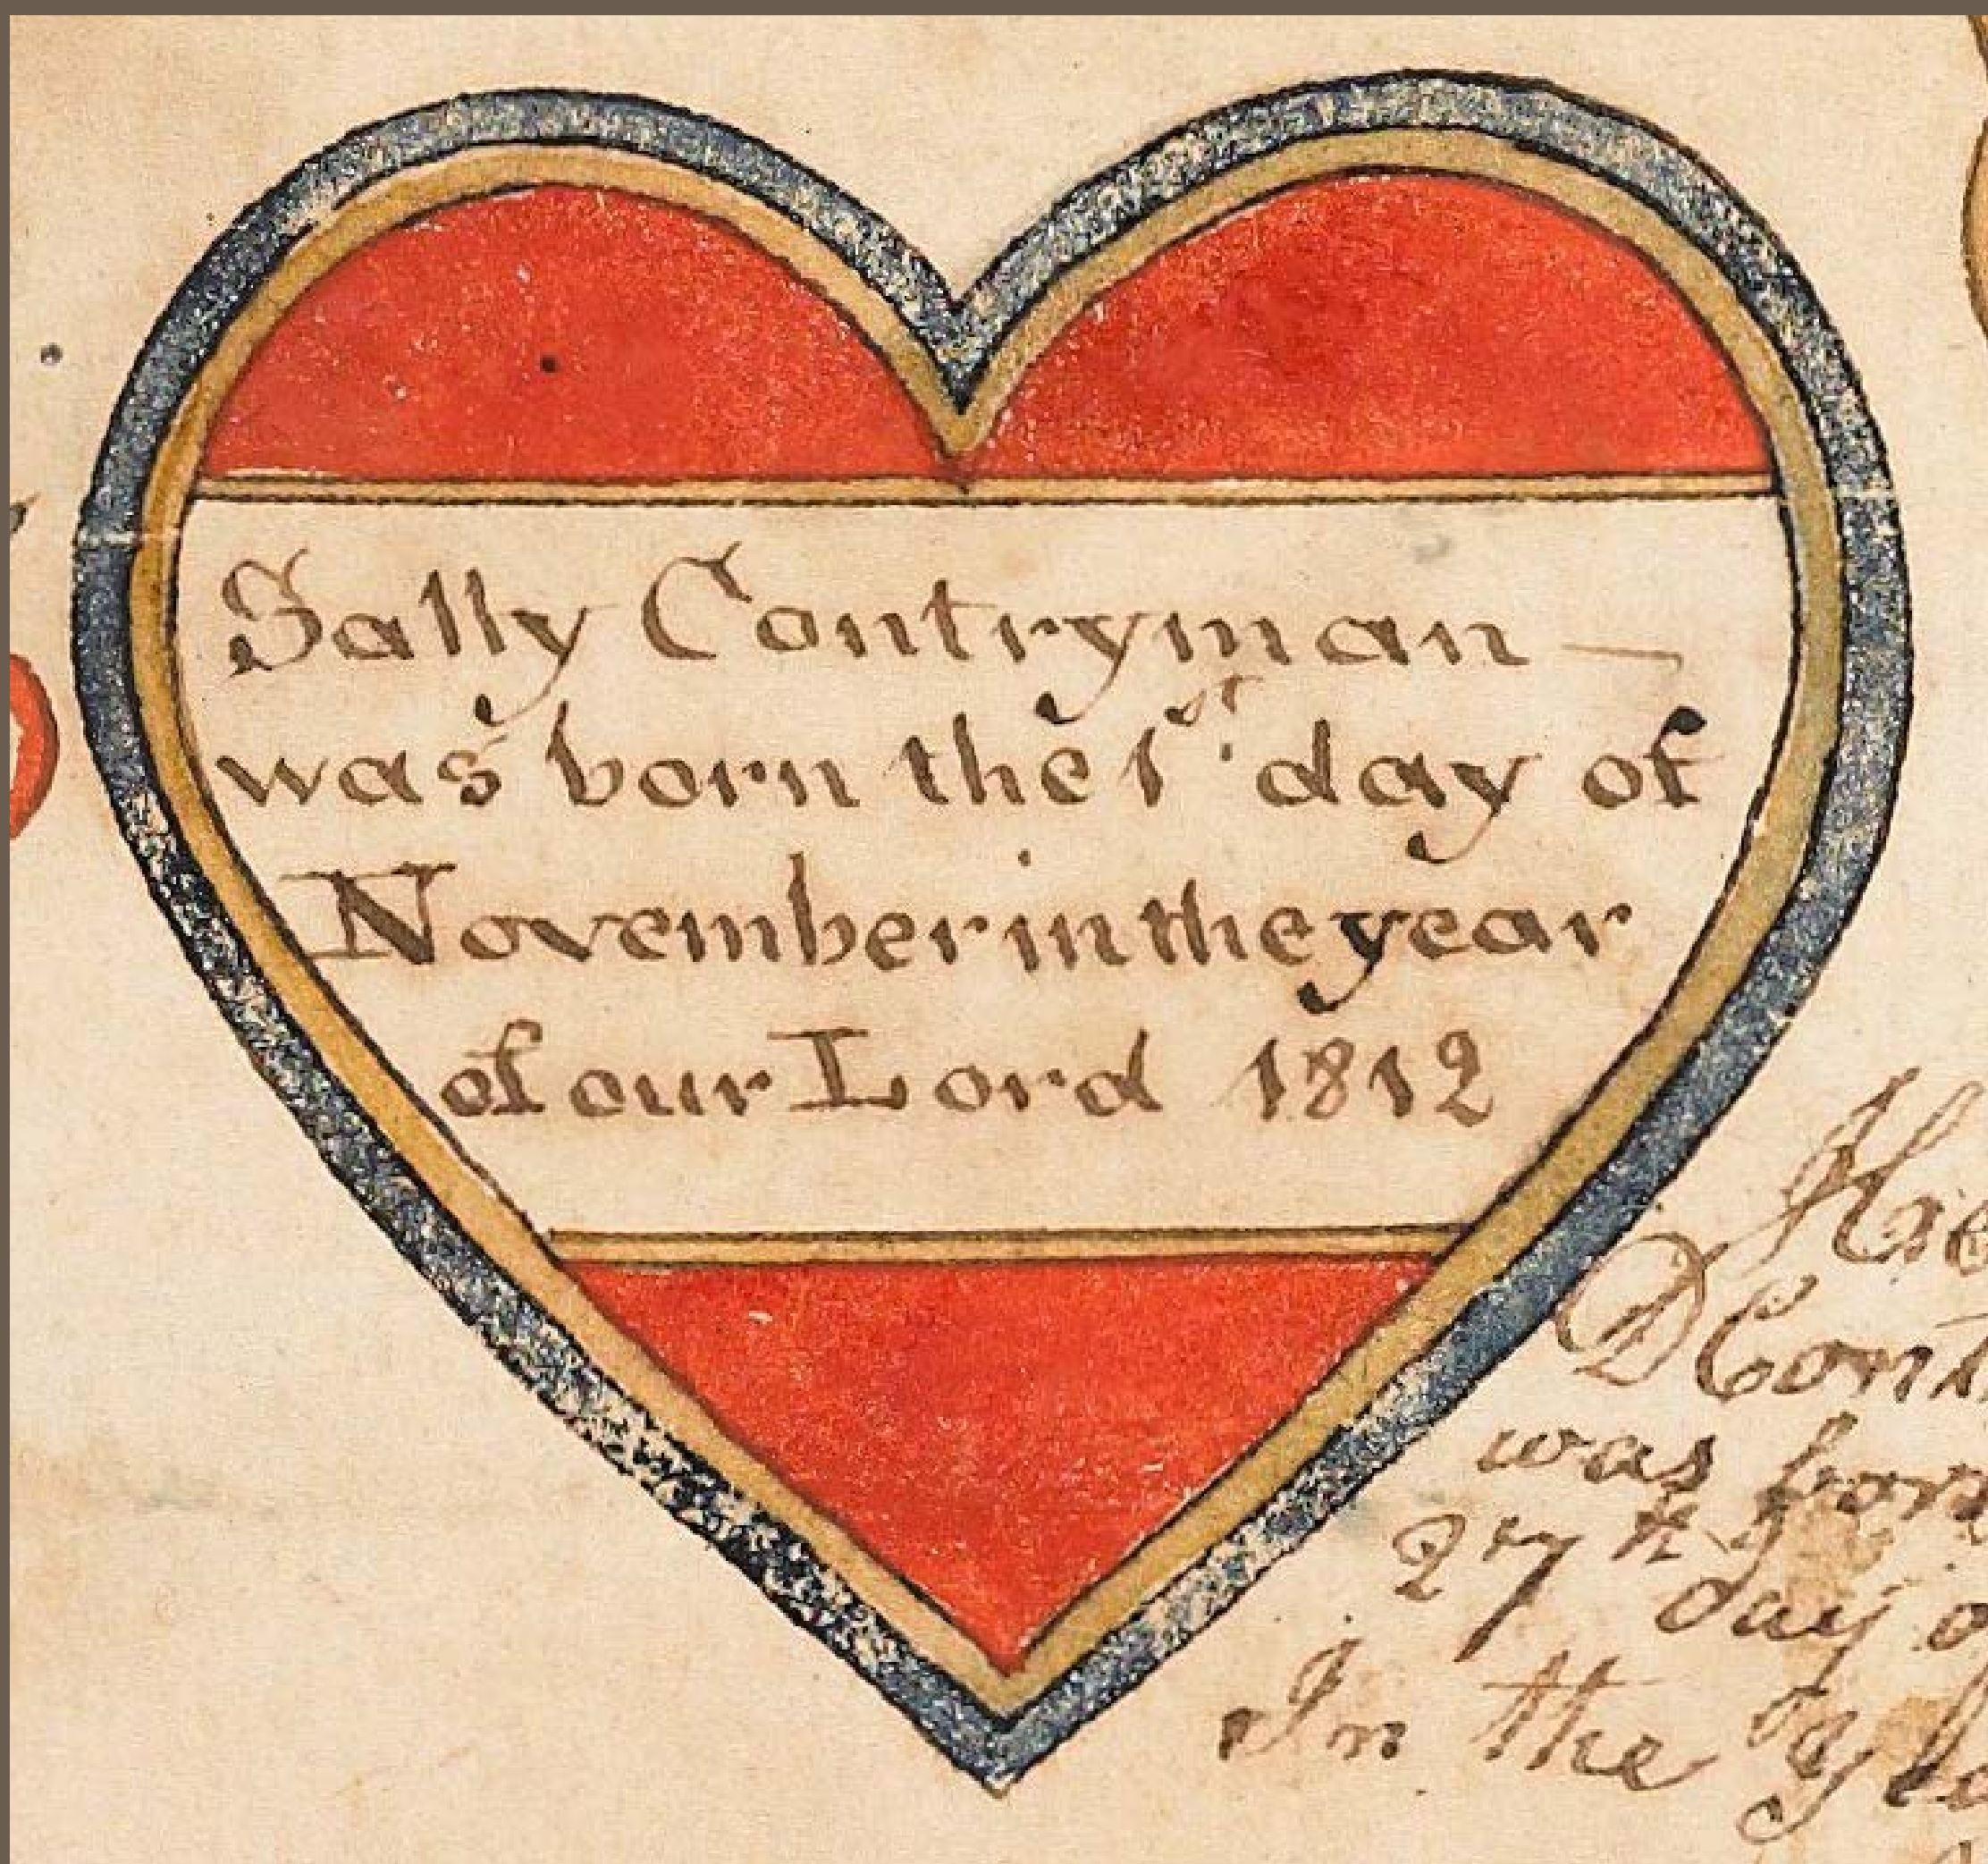 Sally Contryman —
was born the 1st day of
November in the year
of our Lord 1812
was born
27th day
In the